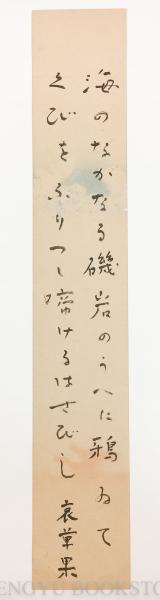 海のなかなる磯岩のうへに鴉ゐて
くびをふりつゝ啼けるはさびし 哀草果
ENGYU BOOKSTO